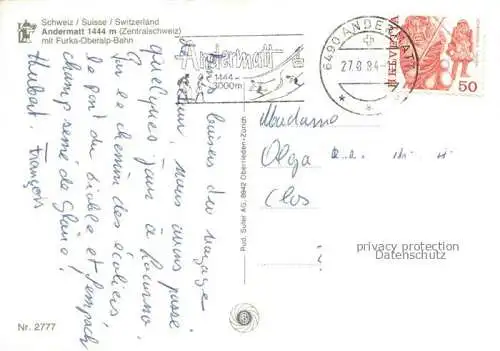 Schweiz / Suisse / Switzerland
Andermatt 1444 m (Zentralschweiz)
mit Furka-Oberalp-Bahn
Andermatt
1444-
3000m
6490 ANDERMATT
27.8.84-1
HELVETIA
50
baisers du voyage
nous avons passé
quelques jours à Locarno.
Sur le chemin des écoliers,
le pont du diable et Sempach
champ semé de glane!
Hubert. François
Madame
Olga
Clos
Pud. Suter AG, 8942 Oberrieden-Zürich
privacy protection
Datenschutz
Nr. 2777